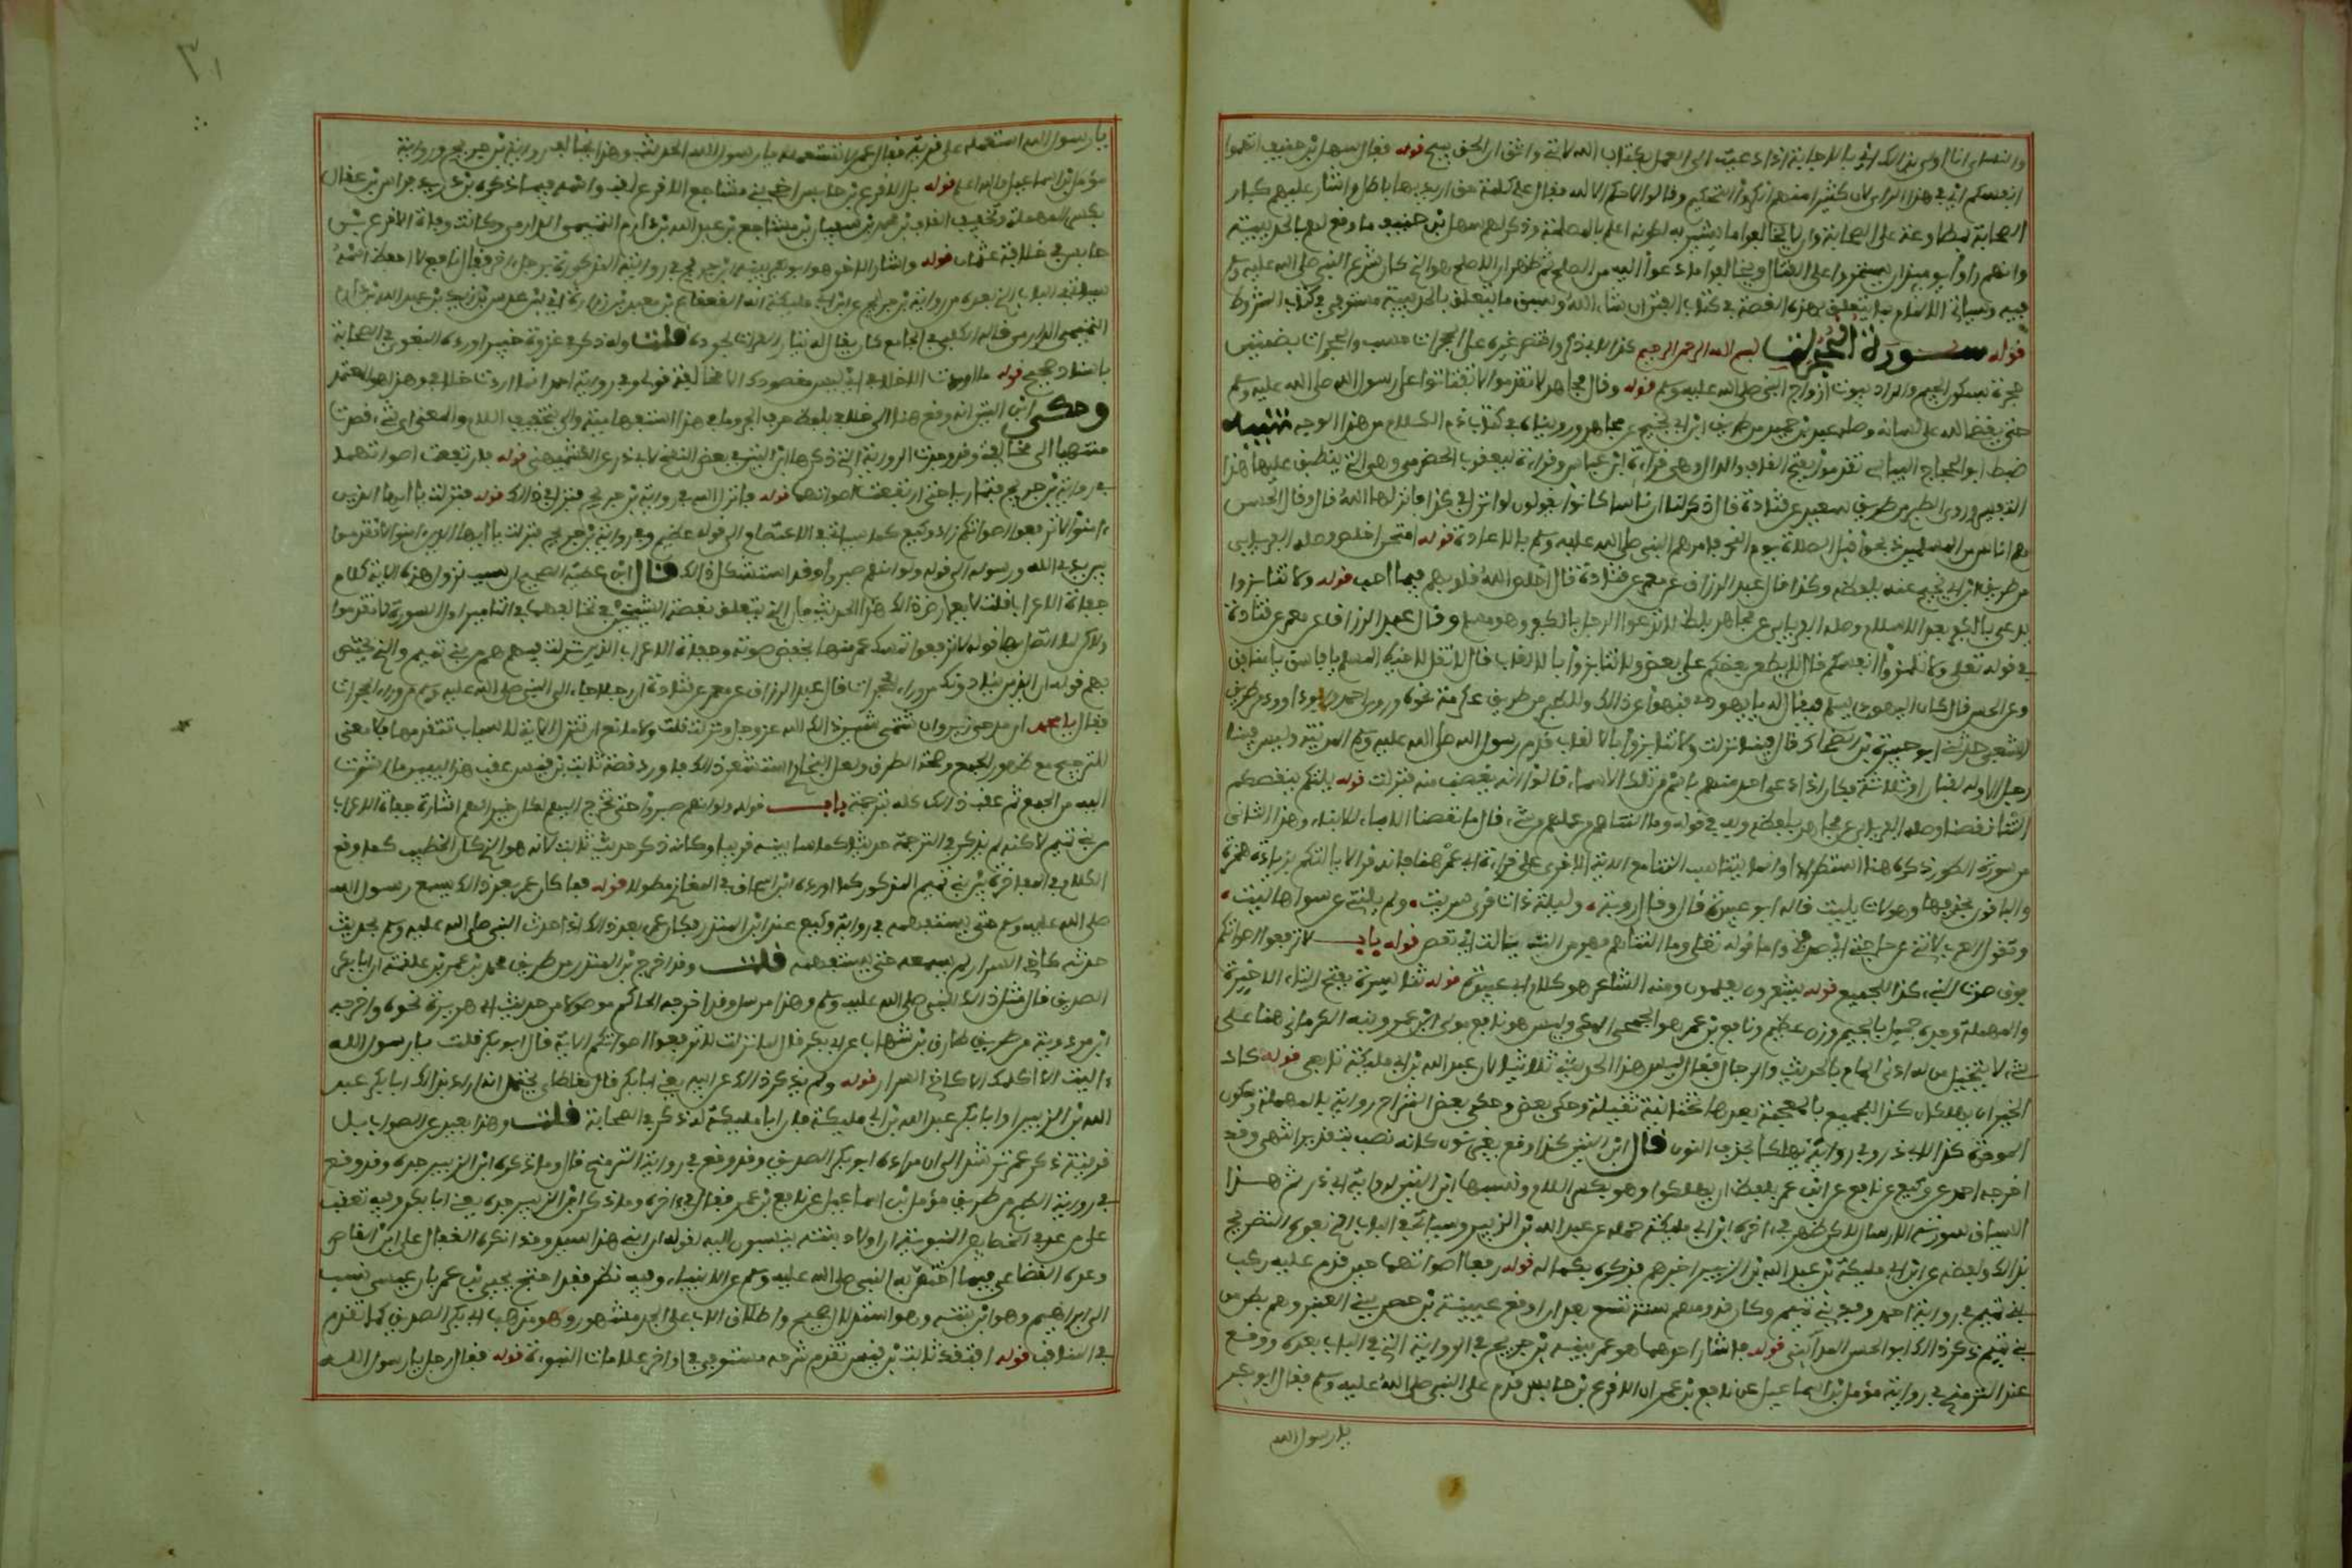 والنساي انا اولى بذالك اي بالاجابة اذا دعيت الى العمل بكتاب الله لانني واثق ان الحق بيدي قوله فقال سهل بن حنيف اتهموا
انفسكم اي في هذا الراي لان كثيرا منهم انكروا التحكيم وقالوا لا حكم الا لله فقال علي كلمة حق اريد بها باطل واشار عليهم كبار
الصحابة بمطاوعة علي
وانهم راوا يوميذ ان يستمروا على القتال ويخالفوا ما دعوا اليه من الصلح ثم ظهر ان الاصلح هو الذي كان شرع النبي صلى الله عليه وسلم
فيه وسياتي ما يتعلق بهذه القصة في كتاب ان شاء الله وسبق ما يتعلق بالحديبية مستوفى في كتاب الشروط
قوله سورة الحجرات بسم الله الرحمن الرحيم كذا لابي ذر واقتصر غيره على الحجرات حسب والحجرات بضمتين
حجرة بسكون الجيم والمراد بيوت ازواج النبي صلى الله عليه وسلم قوله وقال مجاهد لا تقدموا لا تفتاتوا على رسول الله صلى الله عليه وسلم
حتى يقضي الله على لسانه وصله عبد بن حميد من طريق ابن ابي نجيح عن مجاهد ورويناه في كتاب ذم الكلام من هذا الوجه تنبيه
ضبط ابو الحجاج البياسي تقدموا بفتح القاف والدال وهي قراءة ابن عباس وقراءة يعقوب الحضرمي وهي التي ينطبق عليها هذا
التفسير وروى الطبري من طريق سعيد عن قتادة قال ذكر لنا ان ناسا كانوا يقولون لو انزل في كذا فانزلها الله قال وقال الحسن
هم اناس من المسلمين ذبحوا قبل الصلاة يوم النحر فامرهم النبي صلى الله عليه وسلم بالاعادة قوله امتحن اخلص وصله الفريابي
من طريق ابن ابي نجيح عنه بلفظه وكذا قال عبد الرزاق عن معمر عن قتادة قال اخلص الله قلوبهم فيما احب قوله ولا تنابزوا
يدعى بالكفر بعد الاسلام وصله الفريابي عن مجاهد بلفظ لا تدعوا الرجل بالكفر وهو مسلم وقال عبد الرزاق عن معمر عن قتادة
في قوله تعالى ولا تلمزوا انفسكم قال لا يطعن بعضكم على بعض ولا تنابزوا بالالقاب قال لا تقل لاخيك المسلم يا فاسق يا منافق
وعن الحسن قال كان اليهودي يسلم فيقال له يا يهودي فنهوا عن ذالك وللطبري من طريق عكرمة نحوه وروى احمد وابو داوود من طريق
الشعبي حدثني ابو جبيرة بن الضحاك قال فينا نزلت ولا تنابزوا بالالقاب قدم رسول الله صلى الله عليه وسلم المدينة وليس فينا
رجل الا وله لقبان او ثلاثة فكان اذا دعى احد منهم باسم من تلك الاسماء قالوا انه يغضب منه فنزلت قوله يلتكم ينقصكم
التنا نقصنا وصله الفريابي عن مجاهد بلفظه وبه في قوله وما التناهم من عملهم من شيء قال ما نقصنا الاباء للابناء وهذا الثاني
من سورة الطور ذكره هنا استطرادا وانما يتناسب التنا مع الاية الاخرى على قراءة ابي عمرو هنا فانه قرا لا يالتكم بزيادة همزة
والباقون بحذفها وهو من لات يليت قاله ابو عبيدة قال وقال روبة، وليلة ذات ندى سريت، ولم يلتني عن سراها ليت،
وتقول العرب الاتني عن حاجتي اي صرفني واما قوله تعلى وما التناهم فهو من الت يالت اي نقص قوله باب لا ترفعوا اصواتكم
فوق صوت النبي كذا للجميع قوله تشعرون تعلمون ومنه الشاعر هو كلام ابي عبيدة قوله ثنا يسرة بفتح الياء الاخيرة
والمهملة وجده جميل بالجيم وزن عظيم ونافع بن عمر هو الجمحي المكي وليس هو نافع مولى ابن عمر ونبه الكرماني هنا على
شيء لا يتخيله من له ادنى المام بالحديث والرجال فقال ليس هذا الحديث ثلاثيا لان عبد الله بن ابي مليكة تابعي قوله كاد
الخيران يهلكان كذا للجميع بالمعجمة بعدها تحتانية ثقيلة وحكى بعض الشراح رواية بالمهملة وسكون
الموحدة كذا لابي ذر وفي رواية يهلكا بحذف النون قال ابن التين كذا وقع بغير نون كانه نصب بتقدير ان انتهى وقد
اخرجه احمد عن وكيع عن نافع عن ابن عمر بلفظ ان يهلكوا وهو بكسر اللام ونسبها ابن التين لرواية ابي ذر ثم هذا
السياق صورته الارسال لاكن ظهر في اخره ان ابن ابي مليكة حمله عن عبد الله بن الزبير وسياتي في الباب الذي بعده التصريح
بذالك ولفظه عن ابن ابي مليكة ان عبد الله بن الزبير اخبرهم فذكره بكماله قوله رفعا اصواتهما حين قدم عليه ركب
بني تميم في رواية احمد وفد بني تميم وكان قدومهم سنة تسع بعد ان اوقع عيينة بن حصن ببني العنبر وهم بطن من
بني تميم ذكر ذالك ابو الحسن المدايني قوله فاشار احدهما هو عمر بينه ابن جريج في الرواية التي في الباب بعده ووقع
عند الترمذي في رواية مؤمل بن اسماعيل عن نافع بن عمر ان الاقرع بن حابس قدم على النبي صلى الله عليه وسلم فقال ابو بكر
يا رسول الله
يا رسول الله استعمله على قومه فقال عمر لا تستعمله يا رسول الله الحديث وهذا يخالف رواية بن جريج ورواية
مؤمل بن اسماعيل والله اعلم قوله بالاقرع بن حابس اخي بني مشاجع الاقرع لقب واسمه فيما ذكره بن دريد فراس بن عقال
بكسر المهملة وتخفيف القاف بن محمد بن سفيان بن مشاجع بن عبد الله بن دارم التميمي الدارمي وكانت وفاة الاقرع بن
حابس في خلافة عثمان قوله واشار الاخر هو ابو بكر بينه ابن جريج في روايته المذكورة برجل اخر فقال نافع لا احفظ اسمه
سياتي في الباب الذي بعده من رواية بن جريج عن ابن ابي مليكة انه القعقاع بن معبد بن زرارة اي ابن عدس بن زيد بن عبد الله بن دارم
التميمي الدارمي قال الكلبي في الجامع كان يقال له تيار الفرات لجوده قلت وله ذكر في غزوة حنين اورده البغوي في الصحابة
باسناد صحيح قوله ما اردت الا خلافي اي ليس مقصودك الا مخالفة قولي وفي رواية احمد انما اردت خلافي وهذا هو المعتمد
وحكى ابن التين انه وقع هنا الى خلافي بلفظ حرف الجر وما في هذا استفهامية والى بتخفيف اللام والمعنى اي شيء قصدت
منتهيا الى مخالفتي وقد وجدت الرواية التي ذكرها ابن التين في بعض النسخ لابي ذر عن الكشميهني قوله فارتفعت اصواتهما
في رواية بن جريج فتماريا حتى ارتفعت اصواتهما قوله فانزل الله في رواية بن جريج فنزل في ذالك قوله فنزلت يا ايها الذين
امنوا لا ترفعوا اصواتكم زاد وكيع كما سياتي في الاعتصام الى قوله عظيم وفي رواية بن جريج فنزلت يا ايها الذين امنوا لا تقدموا
بين يدي الله ورسوله الى قوله ولو انهم صبروا وقد استشكل ذالك قال ابن عطية الصحيح ان سبب نزول هذه الاية كلام
جفاة الاعراب قلت لا يعارض ذالك هذا الحديث فان الذي يتعلق بقصة الشيخين في تخالفهما في التامير اول السورة لا تقدموا
ولاكن لما اتصل بها قوله لا ترفعوا تمسك عمر منها بخفض صوته وجفاة الاعراب الذين نزلت فيهم هم من بني تميم والذي يختص
بهم قوله ان الذين ينادونك من وراء الحجرات قال عبد الرزاق عن معمر عن قتادة ان رجلا جاء الى النبي صلى الله عليه وسلم من وراء الحجرات
فقال يا محمد ان مدحي زين وان شتمي شين ذالك الله عز وجل ونزلت قلت ولا مانع ان تنزل الاية لاسباب تتقدمها فلا يعدل
للترجيح مع ظهور الجمع وصحة الطرق ولعل البخاري استشعر ذالك فاورد قصة ثابت بن قيس عقب هذا ليبين ما اشرت
اليه من الجمع ثم عقب ذالك كله بترجمة باب قوله ولو انهم صبروا حتى تخرج اليهم لكان خيرا لهم اشارة جفاة الاعراب
من بني تميم لاكنه لم يذكر في الترجمة حديثا كما سابينه قريبا وكانه ذكر حديث ثابت لانه هو الذي كان الخطيب كما وقع
الكلام في المفاخرة بين بني تميم المذكور كما اورده ابن اسحاق في المغازي مطولا قوله فما كان عمر بعد ذالك يسمع رسول الله
صلى الله عليه وسلم حتى يستفهمه في رواية وكيع عند ابن المنذر فكان عمر بعد ذالك اذا حدث النبي صلى الله عليه وسلم بحديث
حدثه كاخي السرار لم يسمعه حتى يستفهمه قلت وقد اخرج بن المنذر من طريق محمد بن عمرو بن علقمة ان ابا بكر
الصديق قال مثل ذالك للنبي صلى الله عليه وسلم وهذا مرسل وقد اخرجه الحاكم موصولا من حديث ابي هريرة نحوه واخرجه
ابن مردويه من طريق طارق بن شهاب عن ابي بكر قال لما نزلت لا ترفعوا اصواتكم الاية قال ابو بكر قلت يا رسول الله
اليت ان لا اكلمك الا كاخي السرار قوله ولم يذكر ذالك عن ابيه يعني ابا بكر قال مغلطاي يحتمل انه اراد بذالك ابا بكر عبد
الله بن الزبير او ابا بكر عبد الله بن ابي مليكة فان ابا مليكة له ذكر في الصحابة قلت وهذا بعيد عن الصواب بل
قرينة ذكر عمر ترشد الى ان مراده ابو بكر الصديق وقد وقع في رواية الترمذي قال وما ذكر ابن الزبير جده وقد وقع
في رواية الطبري من طريق مؤمل بن اسماعيل عن نافع بن عمر فقال في اخره وما ذكر ابن الزبير جده يعني ابا بكر وفيه تعقب
على من عد في الخصايص النبوية ان اولاد بنته ينسبون اليه لقوله ان ابني هذا سيد وقد انكره القفال على ابن القاص
وعده القضاعي فيما اختص به النبي صلى الله عليه وسلم عن الانبياء وفيه نظر فقد احتج يحيى بن يعمر بان عيسى نسب
الى ابراهيم وهو ابن بنته وهو استدلال صحيح واطلاق الاب على الجد مشهور وهو مذهب ابي بكر الصديق كما تقدم
في المناقب قوله افتقد ثابت بن قيس تقدم شرحه مستوفى في اواخر علامات النبوءة قوله فقال رجل يا رسول الله